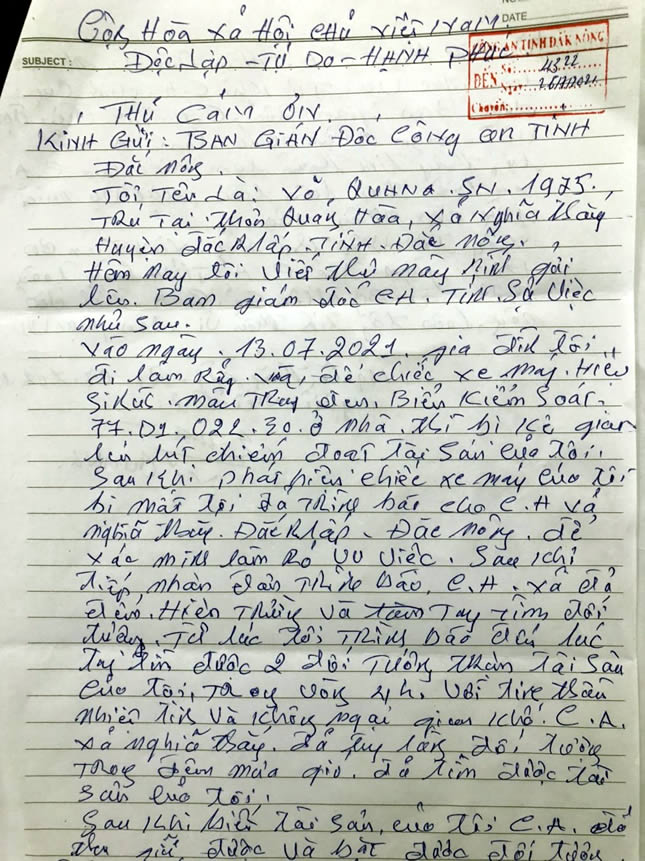 DATE
Cộng Hòa xã Hội chủ việt Nam
SUBJECT:
Độc Lập - Tự Do - HẠNH PHÚC
CÔNG AN TỈNH ĐĂK NÔNG
ĐẾN Số: 4322
Ngày
Chuyển:
THƯ CẢM ƠN
KÍNH GỬI: BAN GIÁN ĐỐC Công an TỈNH
Đắc Nông.
Tôi Tên Là: Võ, QUANG. SN. 1975.
Trú Tại. thôn Quang Hòa, xã Nghĩa thắng
Huyện đắc Rlấp. TỈNH. Đắc Nông.
Hôm Nay tôi Viết thư Này kính gửi
lên. Ban giám đốc C.A. Tỉnh. Sự việc
như sau.
Vào ngày. 13.07.2021. gia đình tôi
đi làm Rẫy. và, để chiếc xe máy. Hiệu
màu Trắng đen. Biển Kiểm Soát.
77.D1.022.30. ở nhà. thì bị kẻ gian
lén lút chiếm đoạt tài sản của tôi.
Sau khi phát hiện chiếc xe máy của tôi
bị mất tôi đã trình báo cho C.A xã
nghĩa thắng. Đắc Rlấp. Đắc Nông. để
xác minh làm rõ vụ việc. Sau khi
tiếp, nhận đơn Trình báo, C.A. xã đã
đến. Hiện Trường và tìm đối
tượng. Từ lúc tôi Trình báo đến lúc
tìm được 2 đối Tượng tài sản
của tôi, Trong vòng 4h. với tinh thần
nhiệt tình và không ngại gian khổ. C.A.
xã nghĩa thắng. đã truy lùng đối tượng
Trong đêm mưa gió. đã tìm được tài
sản của tôi.
Sau khi biết tài sản, của tôi C.A. đã
được và bắt được đối tượng